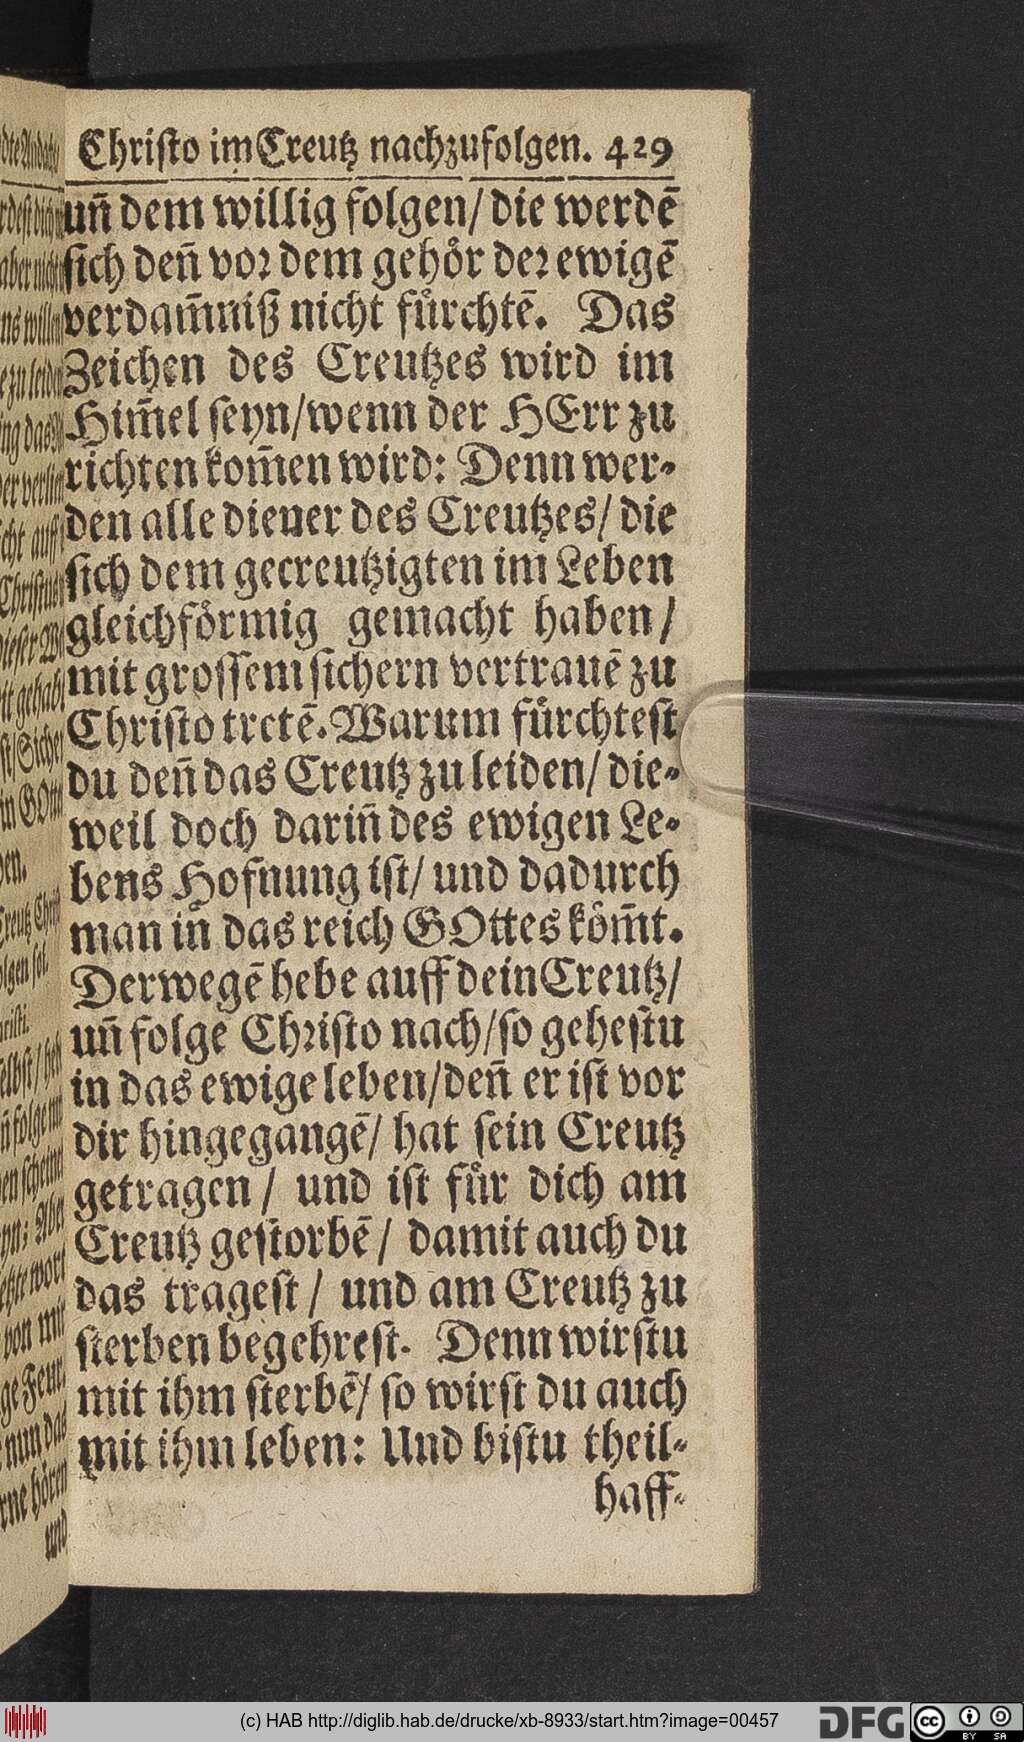 Christo im Creutz nachzufolgen. 429
uñ dem willig folgen/ die werdē
sich deñ vor dem gehör der ewigē
verdam̃niß nicht fürchtē. Das
Zeichen des Creutzes wird im
Him̃el seyn/wenn der HErr zu
richten kom̃en wird: Denn wer-
den alle diener des Creutzes/ die
sich dem gecreutzigten im Leben
gleichförmig gemacht haben/
mit grossem sichern vertrauē zu
Christo tretē. Warum fürchtest
du deñ das Creutz zu leiden/ die-
weil doch dariñ des ewigen Le-
bens Hofnung ist/ und dadurch
man in das reich GOttes köm̃t.
Derwegē hebe auff dein Creutz/
uñ folge Christo nach/so gehestu
in das ewige leben/deñ er ist vor
dir hingegangē/ hat sein Creutz
getragen/ und ist für dich am
Creutz gestorbē/ damit auch du
das tragest/ und am Creutz zu
sterben begehrest. Denn wirstu
mit ihm sterbē/ so wirst du auch
mit ihm leben: Und bistu theil-
haff-
(c) HAB http://diglib.hab.de/drucke/xb-8933/start.htm?image=00457
DFG
cc BY SA